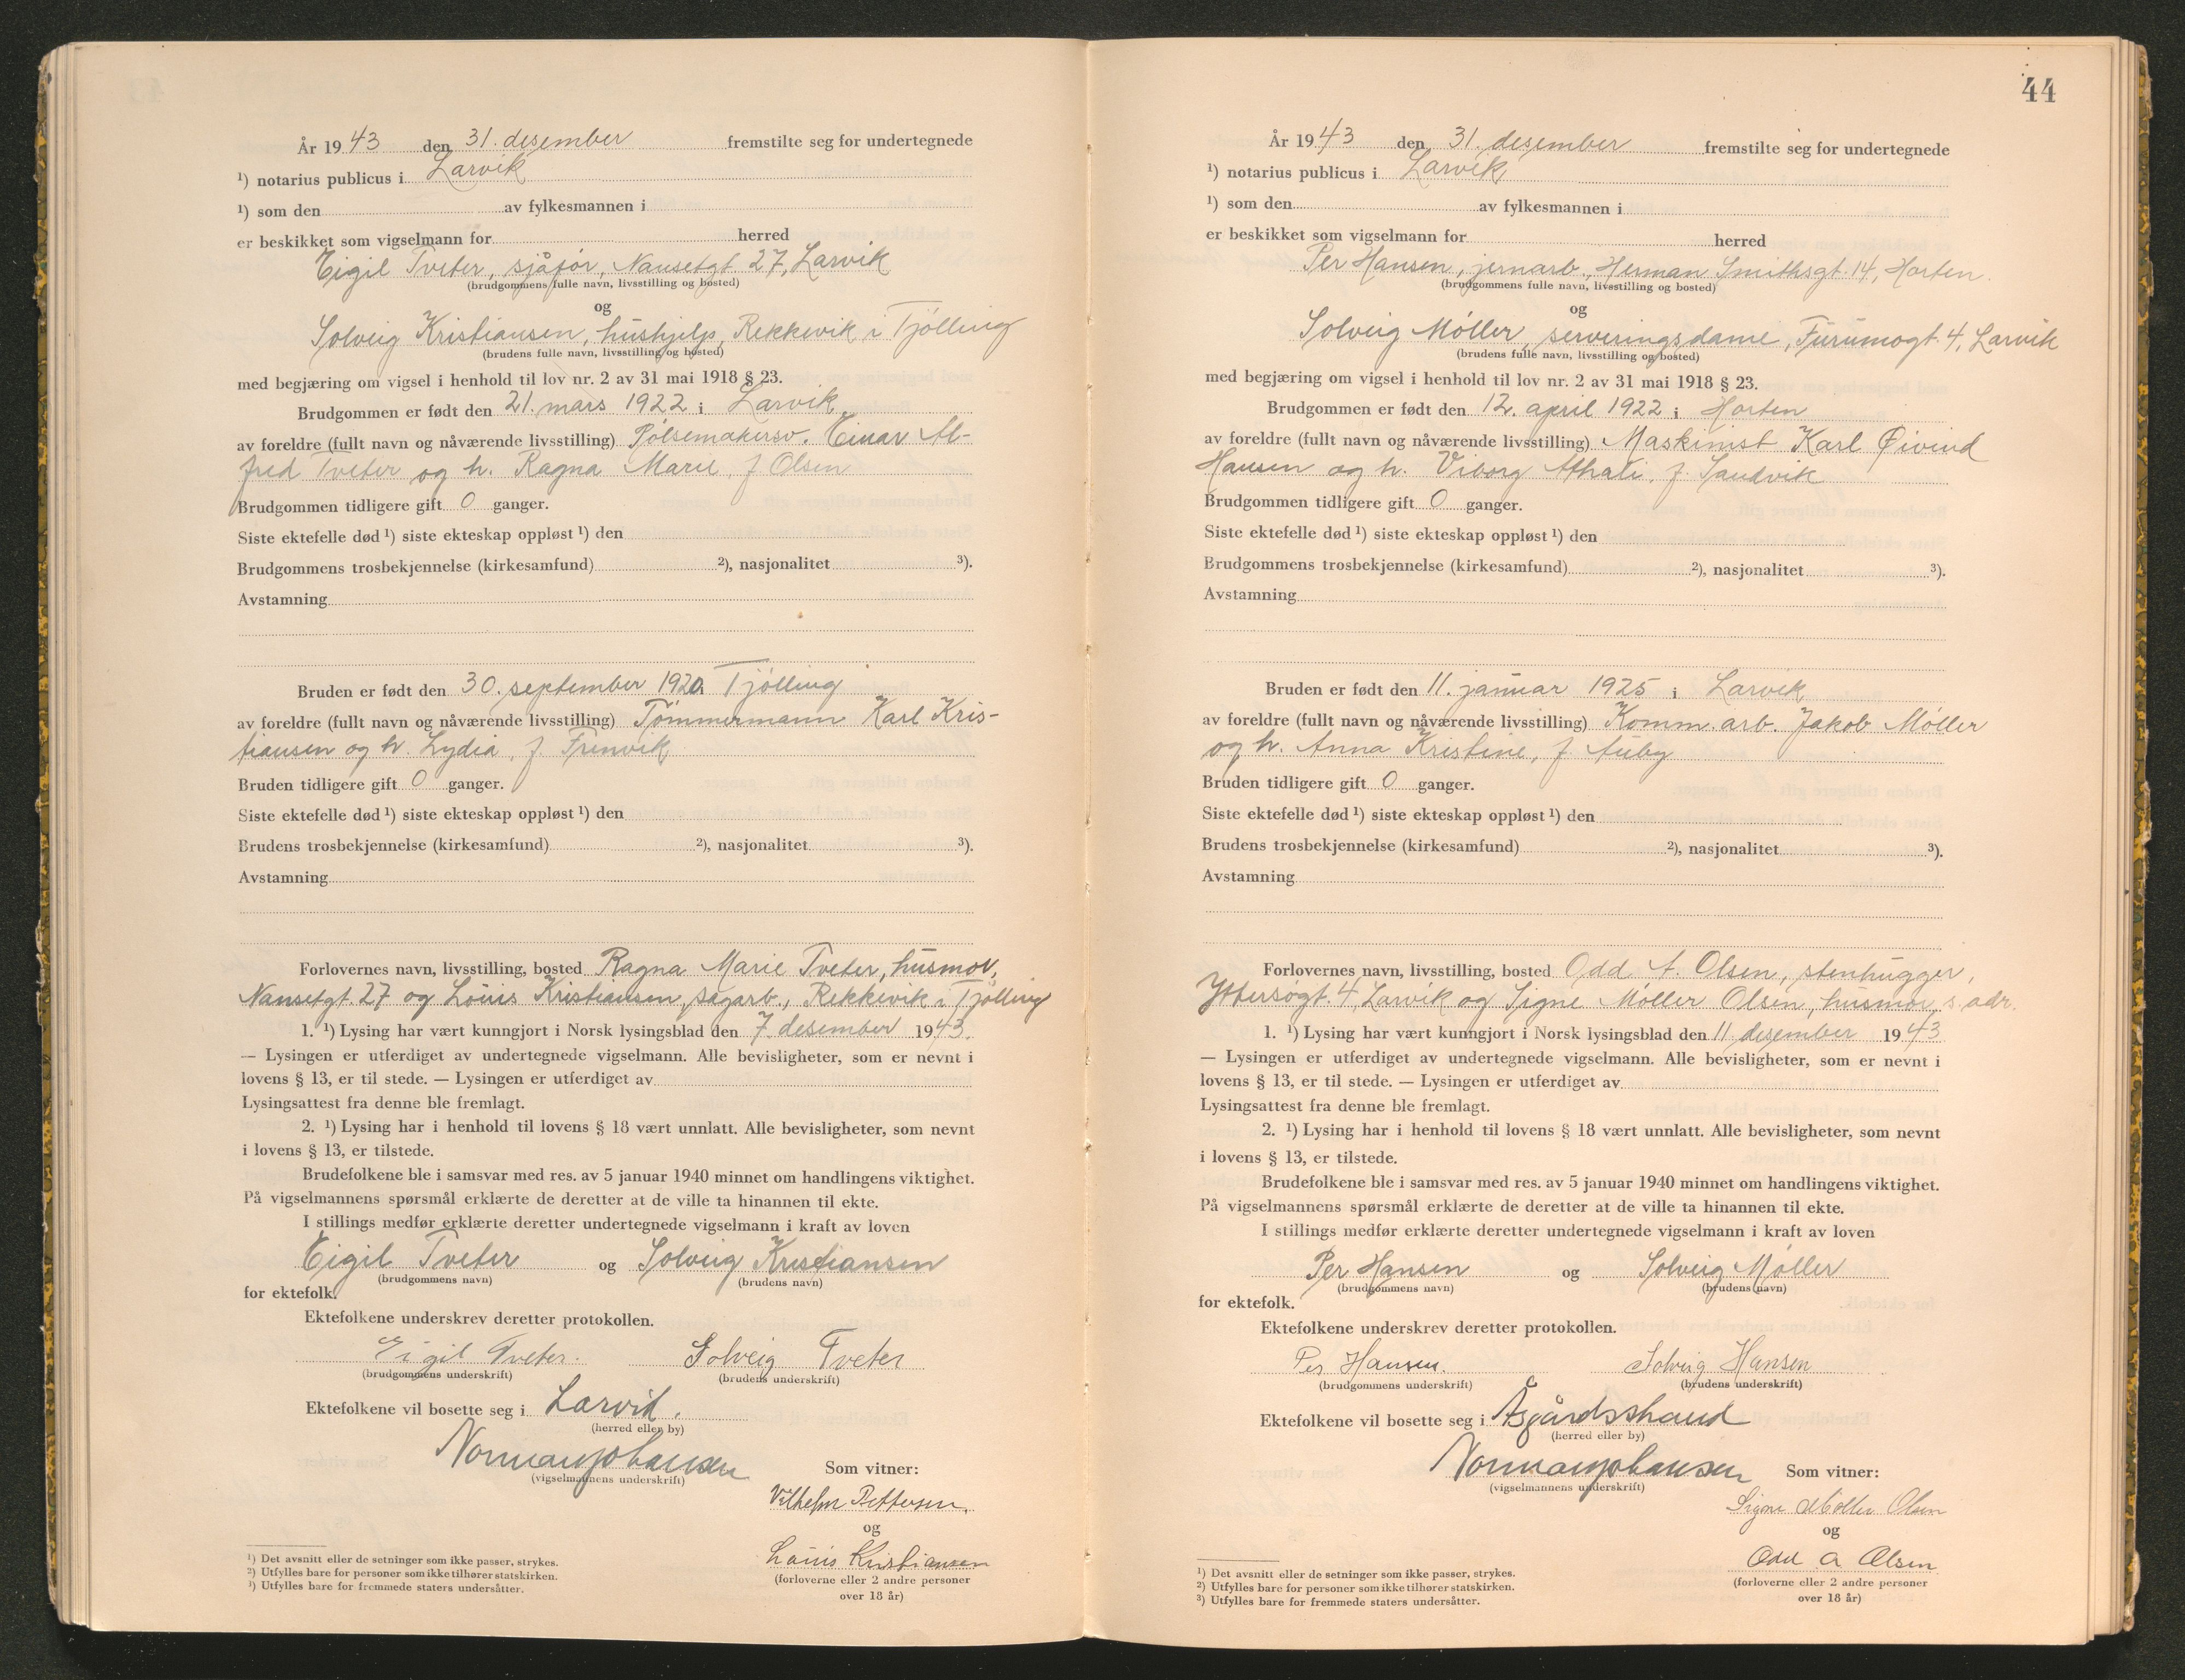 År 1943 den 31. desember fremstilte seg for undertegnede
¹) notarius publicus i Larvik
¹) som den av fylkesmannen i
er beskikket som vigselmann for herred
Eigil Tveter, sjåfør, Nansetgt. 27, Larvik
(brudgommens fulle navn, livsstilling og bosted)
og
Solveig Kristiansen, hushjelp, Rekkevik i Tjølling
(brudens fulle navn, livsstilling og bosted)
med begjæring om vigsel i henhold til lov nr. 2 av 31 mai 1918 § 23.
Brudgommen er født den 21. mars 1922 i Larvik
av foreldre (fullt navn og nåværende livsstilling) Pølsemakersv. Einar Al-
fred Tveter og h. Ragna Marie, f. Olsen
Brudgommen tidligere gift 0 ganger.
Siste ektefelle død ¹) siste ekteskap oppløst ¹) den
Brudgommens trosbekjennelse (kirkesamfund) ²), nasjonalitet ³).
Avstamning
Bruden er født den 30. september 1920 Tjølling
av foreldre (fullt navn og nåværende livsstilling) Tømmermann Karl Kris-
tiansen og h. Lydia, f.
Bruden tidligere gift 0 ganger.
Siste ektefelle død ¹) siste ekteskap oppløst ¹) den
Brudens trosbekjennelse (kirkesamfund) ²), nasjonalitet ³).
Avstamning
Forlovernes navn, livsstilling, bosted Ragna Marie Tveter, husmor,
Nansetgt. 27 og Louis Kristiansen, sagarb., Rekkevik i Tjølling
1. ¹) Lysing har vært kunngjort i Norsk lysingsblad den 7. desember 1943.
— Lysingen er utferdiget av undertegnede vigselmann. Alle bevisligheter, som er nevnt i
lovens § 13, er til stede. — Lysingen er utferdiget av
Lysingsattest fra denne ble fremlagt.
2. ¹) Lysing har i henhold til lovens § 18 vært unnlatt. Alle bevisligheter, som nevnt
i lovens § 13, er tilstede.
Brudefolkene ble i samsvar med res. av 5 januar 1940 minnet om handlingens viktighet.
På vigselmannens spørsmål erklærte de deretter at de ville ta hinannen til ekte.
I stillings medfør erklærte deretter undertegnede vigselmann i kraft av loven
Eigil Tveter og Solveig Kristiansen
(brudgommens navn) (brudens navn)
for ektefolk.
Ektefolkene underskrev deretter protokollen.
Eigil Tveter. Solveig Tveter
(brudgommens underskrift) (brudens underskrift)
Ektefolkene vil bosette seg i Larvik.
(herred eller by)
Norman Johansen
(vigselmannens underskrift)
Som vitner:
Vilhelm Pettersen.
og
Louis Kristiansen
(forloverne eller 2 andre personer
over 18 år)
¹) Det avsnitt eller de setninger som ikke passer, strykes.
²) Utfylles bare for personer som ikke tilhører statskirken.
³) Utfylles bare for fremmede staters undersåtter.
44
År 1943 den 31. desember fremstilte seg for undertegnede
¹) notarius publicus i Larvik
¹) som den av fylkesmannen i
er beskikket som vigselmann for herred
Per Hansen, jernarb., Herman Smithsgt. 14, Horten.
(brudgommens fulle navn, livsstilling og bosted)
og
Solveig Møller, serveringsdame, Furumogt. 4, Larvik
(brudens fulle navn, livsstilling og bosted)
med begjæring om vigsel i henhold til lov nr. 2 av 31 mai 1918 § 23.
Brudgommen er født den 12. april 1922 i Horten
av foreldre (fullt navn og nåværende livsstilling) Maskinist Karl Øivind
Hansen og h. Viborg Athali, f. Sandvik
Brudgommen tidligere gift 0 ganger.
Siste ektefelle død ¹) siste ekteskap oppløst ¹) den
Brudgommens trosbekjennelse (kirkesamfund) ²), nasjonalitet ³).
Avstamning
Bruden er født den 11. januar 1925 i Larvik
av foreldre (fullt navn og nåværende livsstilling) Komm. arb. Jakob Møller
og h. Anna Kristine, f. Auby
Bruden tidligere gift 0 ganger.
Siste ektefelle død ¹) siste ekteskap oppløst ¹) den
Brudens trosbekjennelse (kirkesamfund) ²), nasjonalitet ³).
Avstamning
Forlovernes navn, livsstilling, bosted Odd A. Olsen, stenhugger,
Yttersøgt. 4, Larvik og Signe Møller Olsen, husmor, s. adr.
1. ¹) Lysing har vært kunngjort i Norsk lysingsblad den 11. desember 1943
— Lysingen er utferdiget av undertegnede vigselmann. Alle bevisligheter, som er nevnt i
lovens § 13, er til stede. — Lysingen er utferdiget av
Lysingsattest fra denne ble fremlagt.
2. ¹) Lysing har i henhold til lovens § 18 vært unnlatt. Alle bevisligheter, som nevnt
i lovens § 13, er tilstede.
Brudefolkene ble i samsvar med res. av 5 januar 1940 minnet om handlingens viktighet.
På vigselmannens spørsmål erklærte de deretter at de ville ta hinannen til ekte.
I stillings medfør erklærte deretter undertegnede vigselmann i kraft av loven
Per Hansen og Solveig Møller
(brudgommens navn) (brudens navn)
for ektefolk.
Ektefolkene underskrev deretter protokollen.
Per Hansen. Solveig Hansen
(brudgommens underskrift) (brudens underskrift)
Ektefolkene vil bosette seg i Åsgårdsstrand
(herred eller by)
Norman Johansen
(vigselmannens underskrift)
Som vitner:
Signe Møller Olsen
og
Odd A Olsen
(forloverne eller 2 andre personer
over 18 år)
¹) Det avsnitt eller de setninger som ikke passer, strykes.
²) Utfylles bare for personer som ikke tilhører statskirken.
³) Utfylles bare for fremmede staters undersåtter.